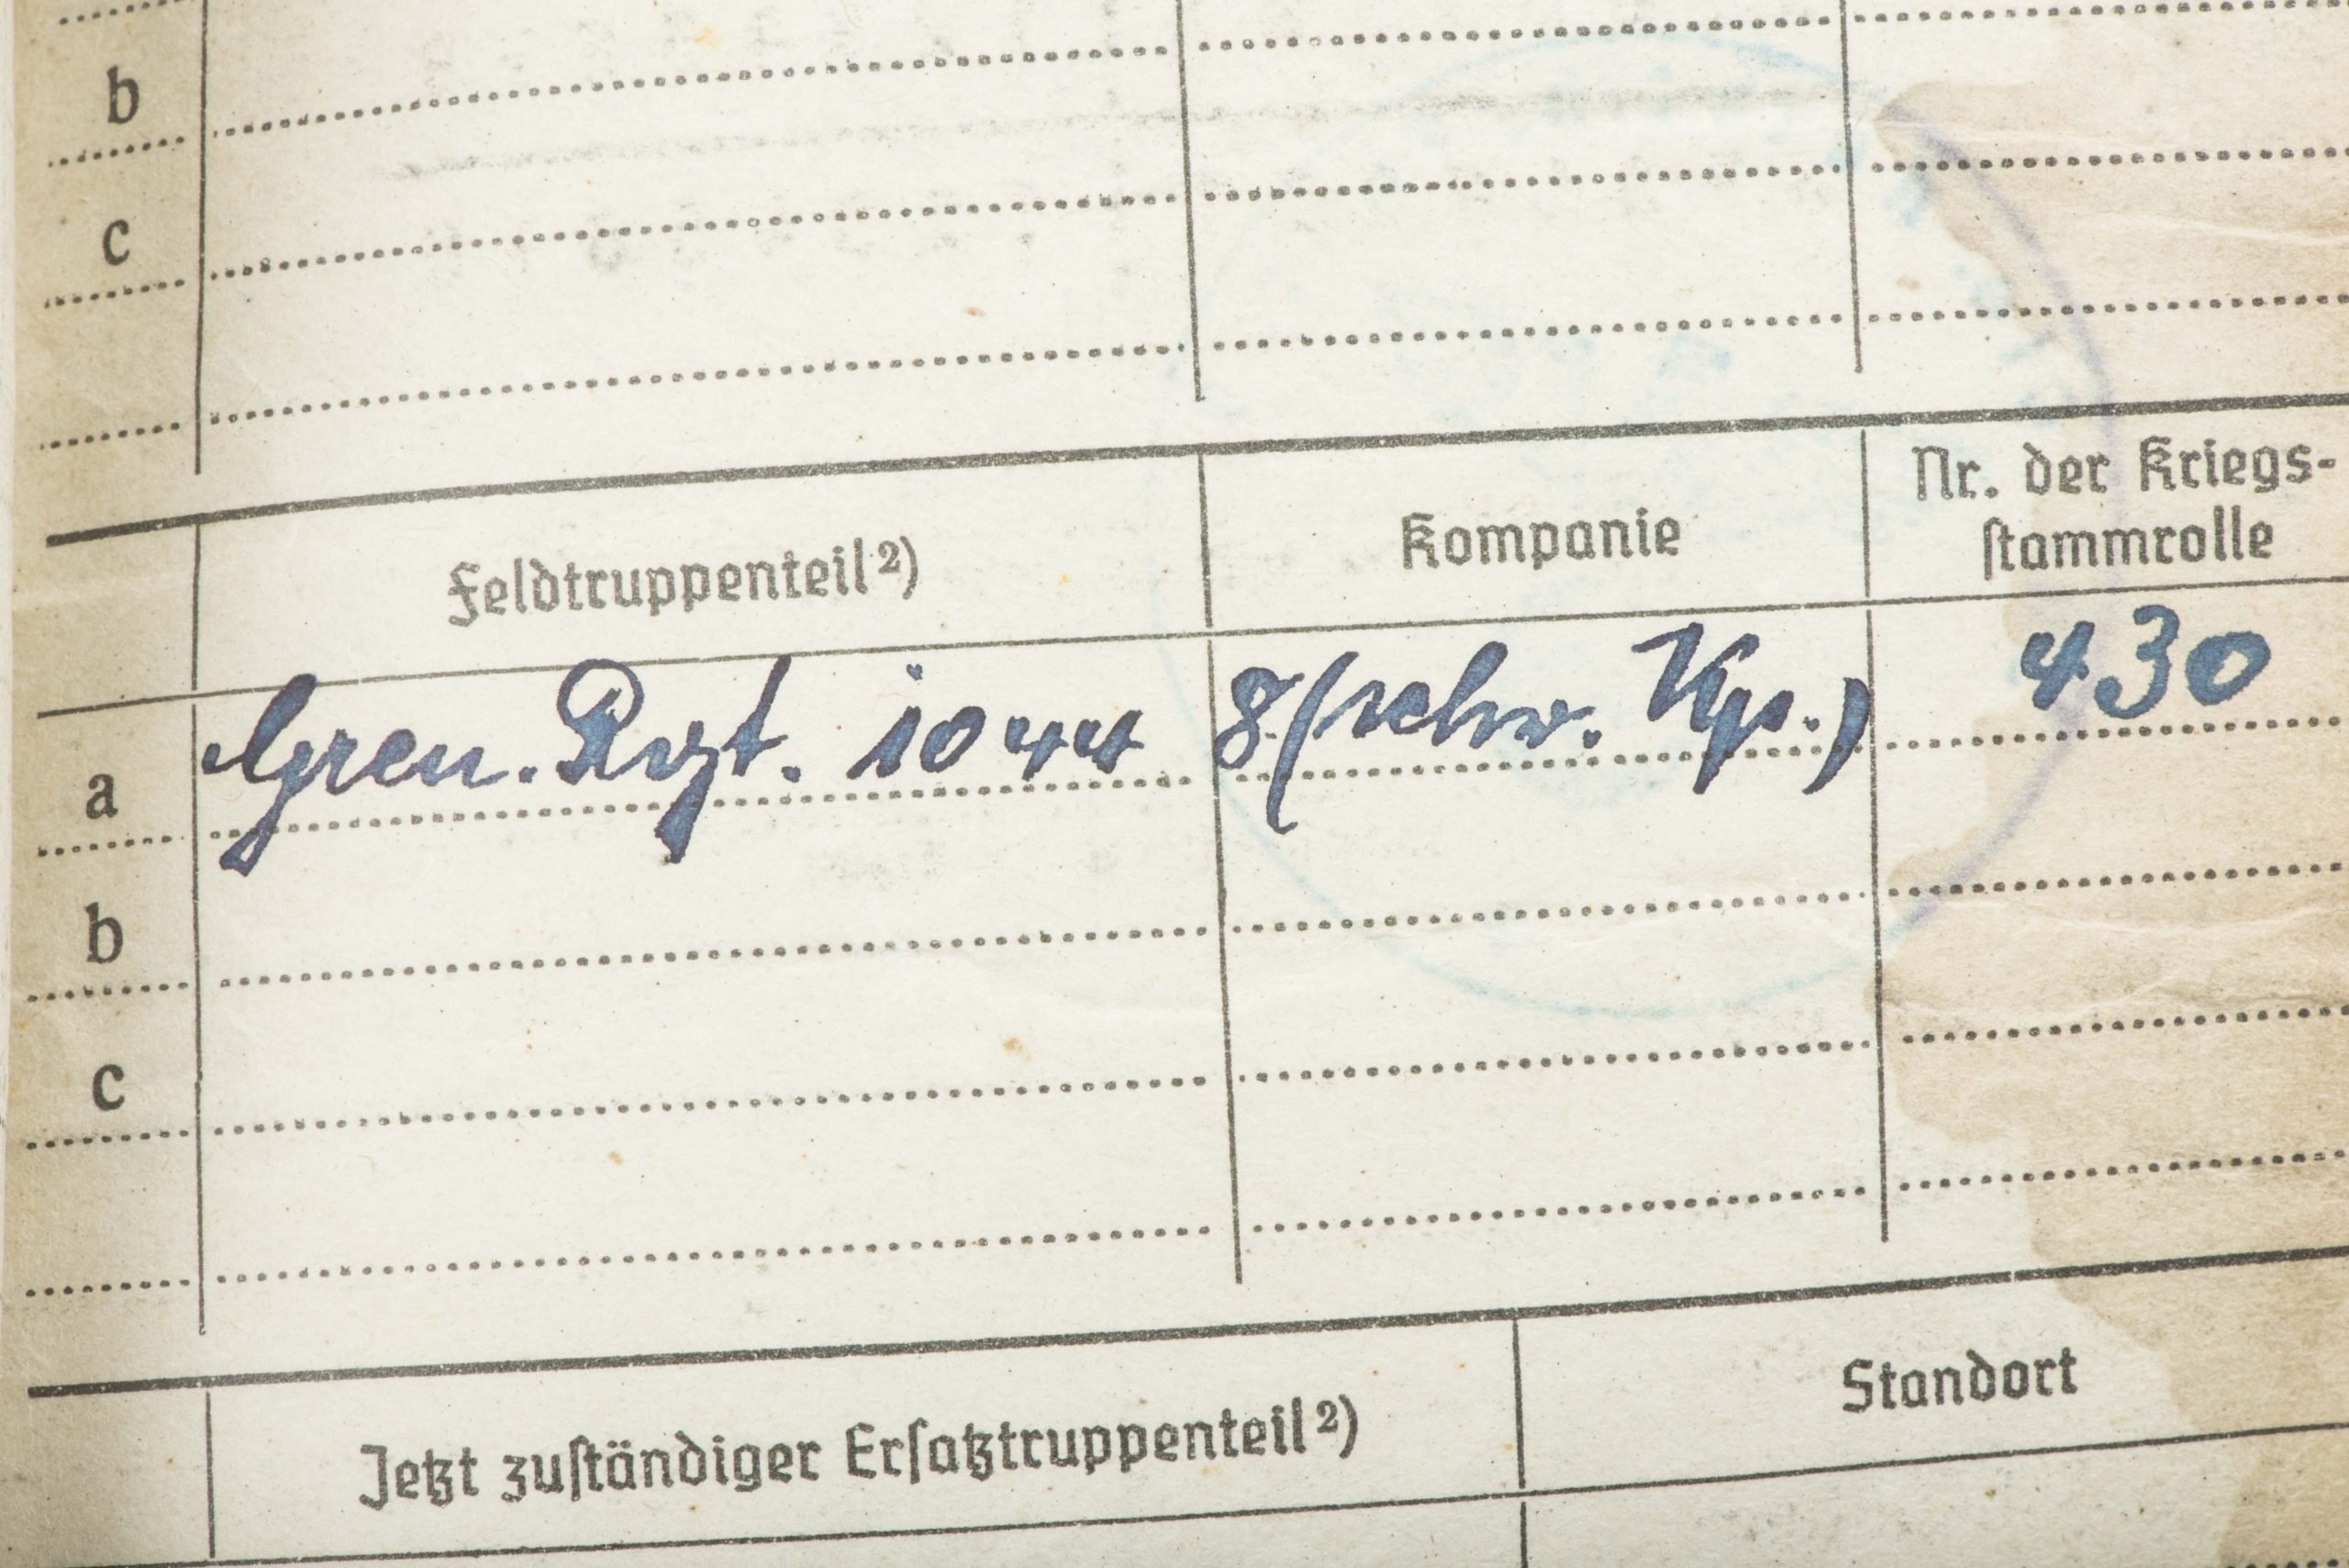 b
c
Feldtruppenteil²) Kompanie Nr. der Kriegs-
stammrolle
a Gren. Rgt. 1044 8 (schw. Kp.) 430
b
c
Jetzt zuständiger Ersatztruppenteil²) Standort